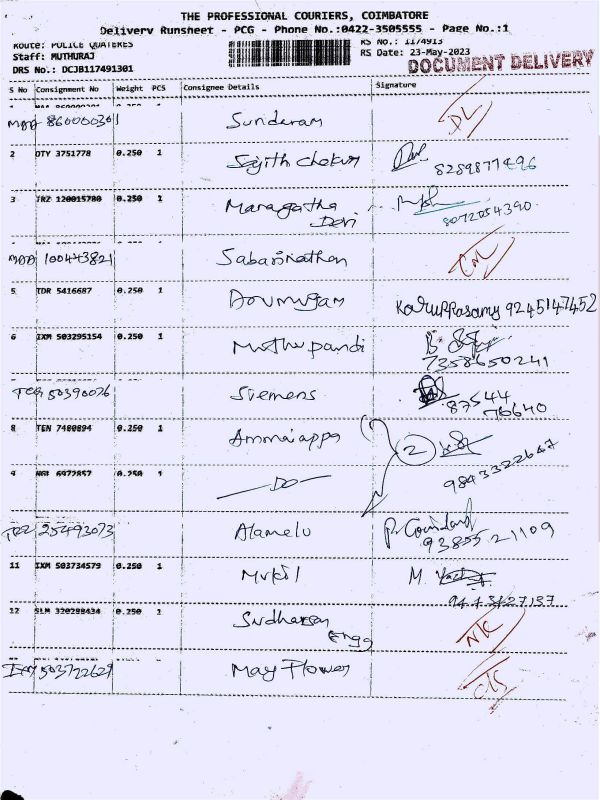 THE PROFESSIONAL COURIERS, COIMBATORE
Delivery Runsheet - PCG - Phone No.:0422-3505555 - Page No.:1
Route: POLICE QUATERES RS No.: 1174913
Staff: MUTHURAJ RS Date: 23-May-2023
DRS No.: DCJB117491301 DOCUMENT DELIVERY
S No Consignment No Weight PCS Consignee Details Signature
860000301 Sundaram DL
2 QTY 3751778 0.250 1 Sajith 8289877496
3 TRZ 120015780 0.250 1 Maragatha Devi 8072054390
100443821 Sabarinathan
5 TDR 5416687 0.250 1 Karuppasamy 9245147452
6 IXM 503295154 0.250 1 Muthupandi 7358650241
50390076 Siemens 87544 70640
8 TEN 7480894 0.250 1 Ammaiappa 2 9843322647
9 6972857 0.250 1 DO
25493073 Alamelu 93855 21109
11 IXM 503734579 0.250 1 M.
12 SLM 320288434 0.250 1 Sudharsan Engg
503722629 May Flower